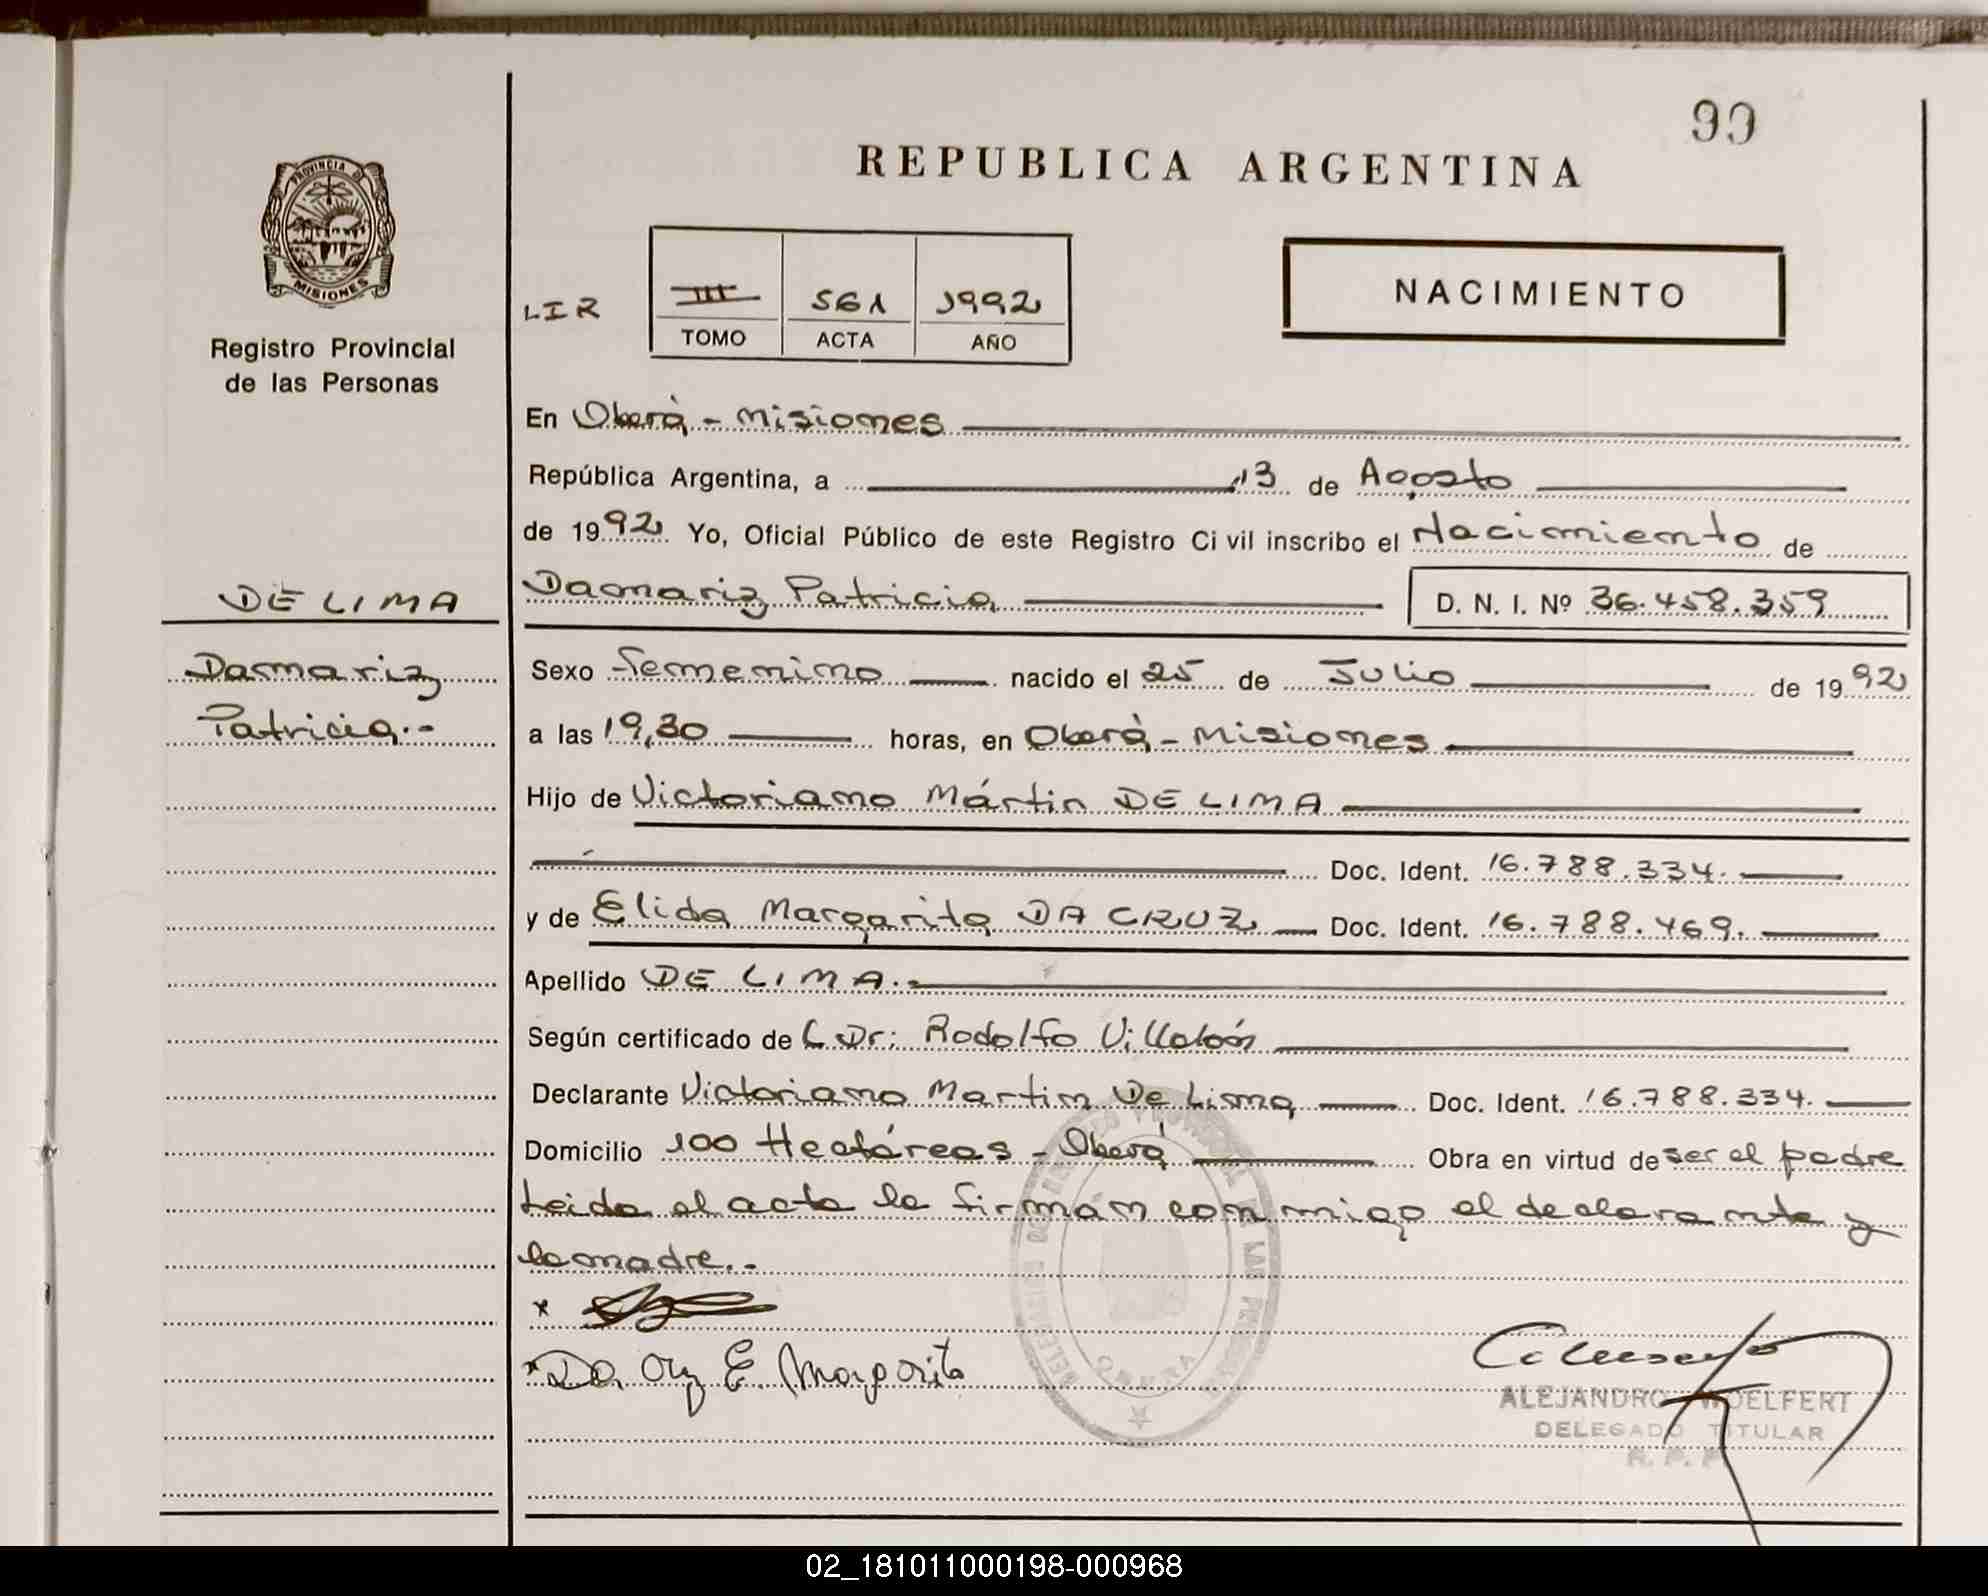 99
REPUBLICA ARGENTINA
PROVINCIA DE
MISIONES
Registro Provincial
de las Personas
LIR
III 561 1992
TOMO ACTA AÑO
NACIMIENTO
En Oberá - Misiones
República Argentina, a 13 de Agosto
de 1992 Yo, Oficial Público de este Registro Civil inscribo el Nacimiento de
DE LIMA
Damariz Patricia D. N. I. Nº 36.458.359
Damariz
Patricia.-
Sexo femenino nacido el 25 de Julio de 1992
a las 19,30 horas, en Oberá - Misiones
Hijo de Victoriano Mártin DE LIMA
Doc. Ident. 16.788.334.
y de Elida Margarita DA CRUZ Doc. Ident. 16.788.469.
Apellido DE LIMA.-
Según certificado de L Dr: Rodolfo Villalón
Declarante Victoriano Martin De Lima Doc. Ident. 16.788.334.
Domicilio 100 Hectáreas - Oberá Obra en virtud de ser el padre
Leida el acta la firmán conmigo el declarante y
la madre.-
x
x Da Cruz E. Margarita
ALEJANDRO WOELFERT
DELEGADO TITULAR
R. P. P.
OBERA
02_181011000198-000968